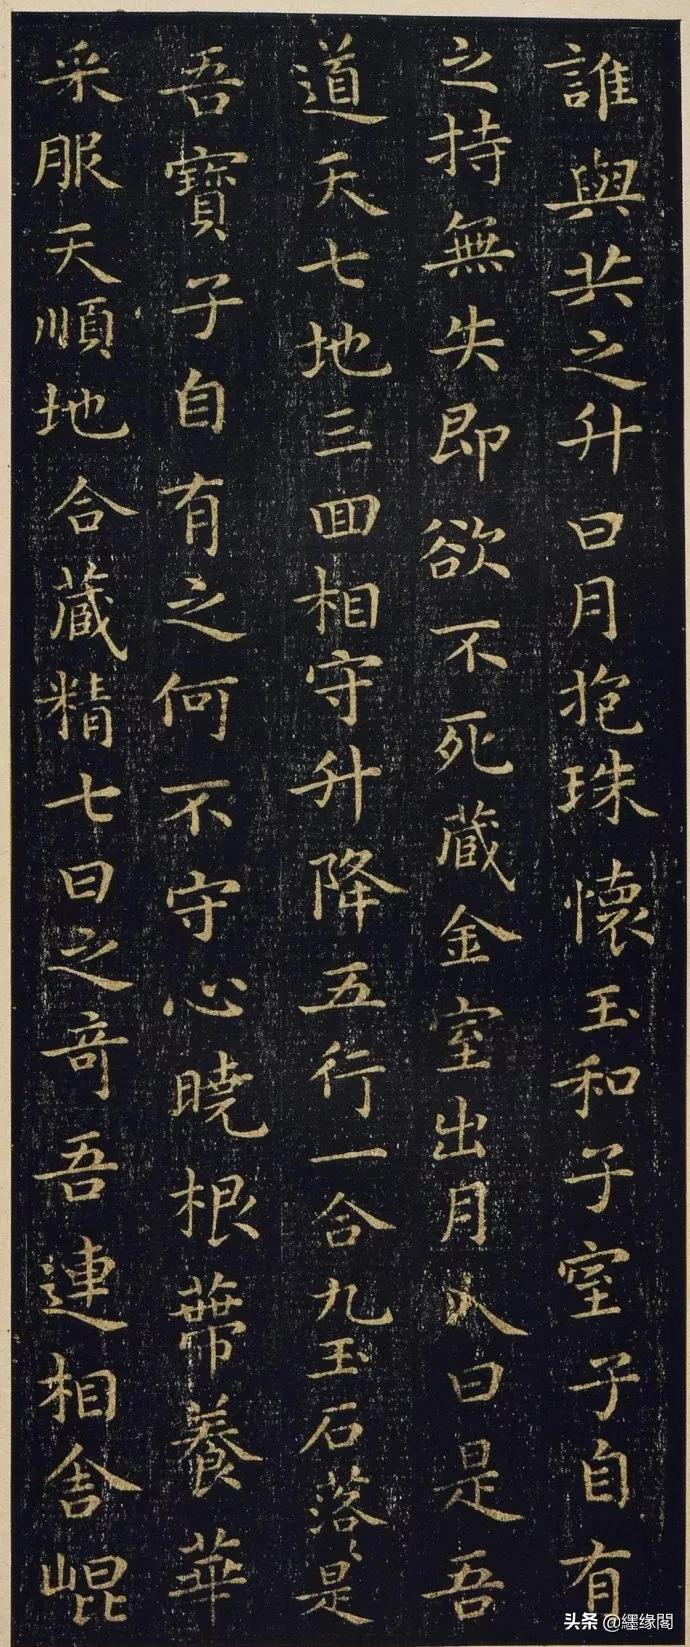 誰與共之升日月抱珠懷玉和子室子自有
之持無失即欲不死蔵金室出月入日是吾
道天七地三回相守升降五行一合九玉石落〻是
吾寶子自有之何不守心曉根蔕養華
采服天順地合蔵精七日之奇吾連相舎崐
头条 @纆缘閣